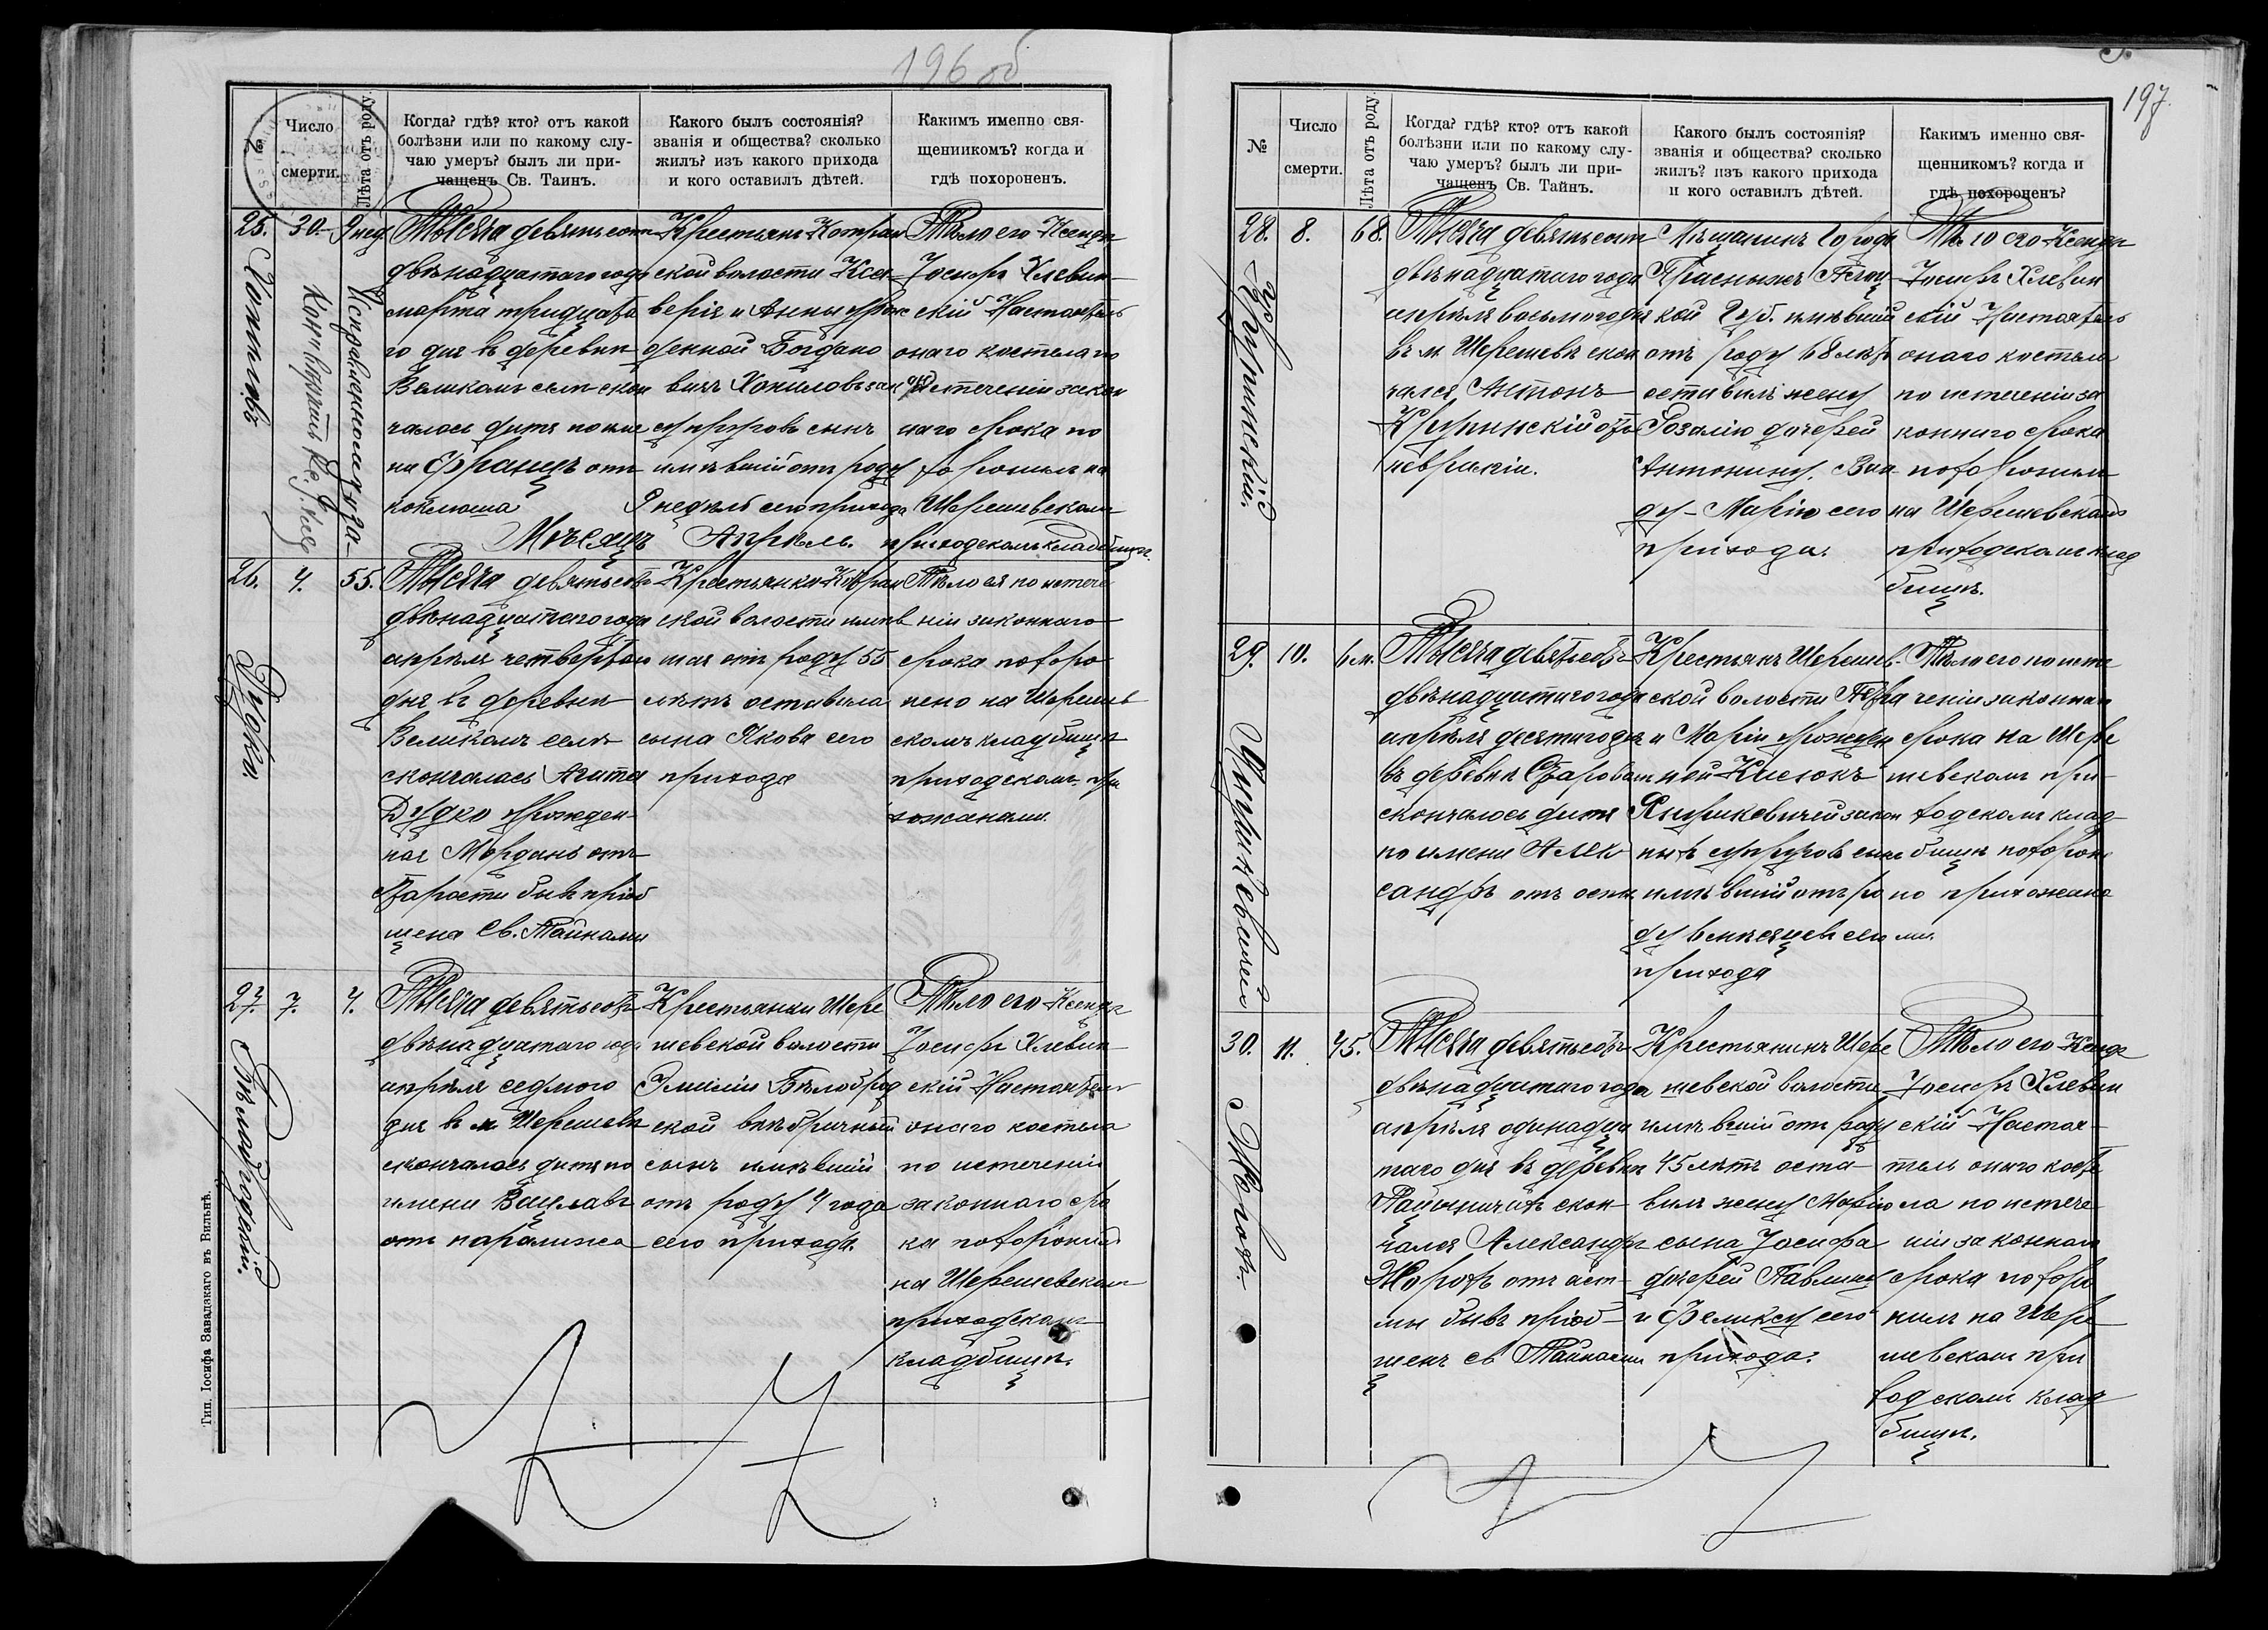 196 об
№
Число
смерти.
Лѣта отъ роду.
Когда? гдѣ? кто? отъ какой
болѣзни или по какому слу-
чаю умеръ? былъ ли при-
чащенъ Св. Таинъ.
Какого былъ состоянія?
званія и общества? сколько
жилъ? изъ какого прихода
и кого оставилъ дѣтей.
Какимъ именно свя-
щенникомъ? когда и
гдѣ похороненъ.
25.
30.
9 нед
Тысяча девятьсотъ
двѣнадцатаго года
марта тридцата
го дня въ деревни
Великомъ селѣ скон
чалось дитя по име
ни Францъ отъ
коклюша
Крестьянъ Котран
ской волости Ксa
верія и Анны урож
денной Богдано
вичъ Хониловъ зак
супруговъ сынъ
имѣвшій отъ роду
9 недѣль сего прихода
Тѣло его Ксендзъ
Іосифъ Хлевин
скій Настоятель
онаго костела по
истеченіи закон
наго срока по
хоронилъ на
Шерешевскомъ
приходскомъ кладбищѣ.
Мѣсяцъ Апрѣль.
26.
4.
55.
Дудко.
Тысяча девятьсотъ
двѣнадцатаго года
апрѣля четвертаго
дня въ деревни
Великомъ селѣ
скончалась Агата
Дудко урожден
ная Морданъ отъ
старости бывъ пріоб
щена Св. Тайнами
Крестьянка Котран
ской волости имѣв
шая отъ роду 55
лѣтъ оставила
сына Якова сего
прихода
Тѣло ея по истече
ніи законнаго
срока похоро
нено на Шерешев
скомъ кладбищѣ
приходскомъ при
хожанами.
27.
7.
4.
Бѣлобродскій.
Тысяча девятьсотъ
двѣнадцатаго года
апрѣля седмого
дня въ м Шерешевѣ
скончалось дитя по
имени Вацлавъ
отъ паралижа
Крестьянки Шере
шевской волости
Эмиліи Бѣлоброд
ской внѣбрачный
сынъ имѣвшій
отъ роду 4 года
сего прихода.
Тѣло его Ксендзъ
Іосифъ Хлевин
скій Настоятель
онаго костела
по истеченіи
законнаго сро
ка похоронилъ
на Шерешевскомъ
приходскомъ
кладбищѣ.
Тип. Іосифа Завадзкаго въ Вильнѣ.
197.
№
Число
смерти.
Лѣта отъ роду.
Когда? гдѣ? кто? отъ какой
болѣзни или по какому слу-
чаю умеръ? былъ ли при-
чащенъ Св. Тайнъ.
Какого былъ состоянія?
званія и общества? сколько
жилъ? изъ какого прихода
и кого оставилъ дѣтей.
Какимъ именно свя-
щенникомъ? когда и
гдѣ похороненъ?
28.
8.
68.
Крупинскій.
Тысяча девятьсотъ
двѣнадцатаго года
апрѣля восьмого дня
въ м. Шерешевѣ скон
чался Антонъ
Крупинскій отъ
невралгіи.
Мѣщанинъ города
кой Губ. имѣвшій
отъ роду 68 лѣтъ
оставилъ жену
Розалію дочерей
Антонину. Ван
ду - Марію сего
прихода.
Тѣло его Ксендзъ
Іосифъ Хлевин
скій Настоятель
онаго костела
по истеченіи за
коннаго срока
похоронилъ
на Шерешевскомъ
приходскомъ клад
бищѣ.
29.
10.
6 м.
Тысяча девятьсотъ
двѣнадцатаго года
апрѣля десятаго дня
скончалось дитя
по имени Алек
сандръ отъ оспы.
Крестьянъ Шерешев-
ской волости Петра
и Маріи урожден
ной Кисюкъ
закон
ныхъ супруговъ сынъ
имѣвшій отъ ро
ду 6 мѣсяцевъ сего
прихода
Тѣло его по исте
ченіи законнаго
срока на Шере
шевскомъ при-
ходскомъ клад-
бищѣ похороне
но прихожана
ми.
30.
11.
45.
Жорохъ.
Тысяча девятьсотъ
двѣнадцатаго года
апрѣля одинадца
таго дня въ деревни
скон-
чался Александръ
Жорохъ отъ аст-
мы бывъ пріоб-
щенъ св Тайнами
Крестьянинъ Шере
шевской волости
имѣвшій отъ роду
45 лѣтъ оста-
вилъ жену Марію
сына Іосифа
дочерей Павлину
и Феликсу сего
прихода.
Тѣло его Ксендзъ
Іосифъ Хлевин
скій Настоя-
тель онаго косте
ла по истече
ніи законнаго
срока похоро
нилъ на Шере
шевскомъ при
ходскомъ клад
бищѣ.